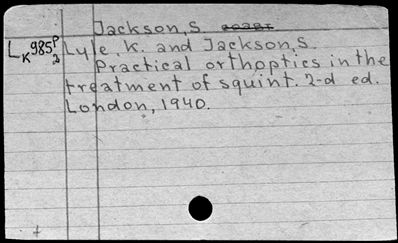 Jackson, S.
LK 985P/2
Lyle K. and Jackson, S.
Practical orthoptics in the
treatment of squint. 2-d ed.
London, 1940.